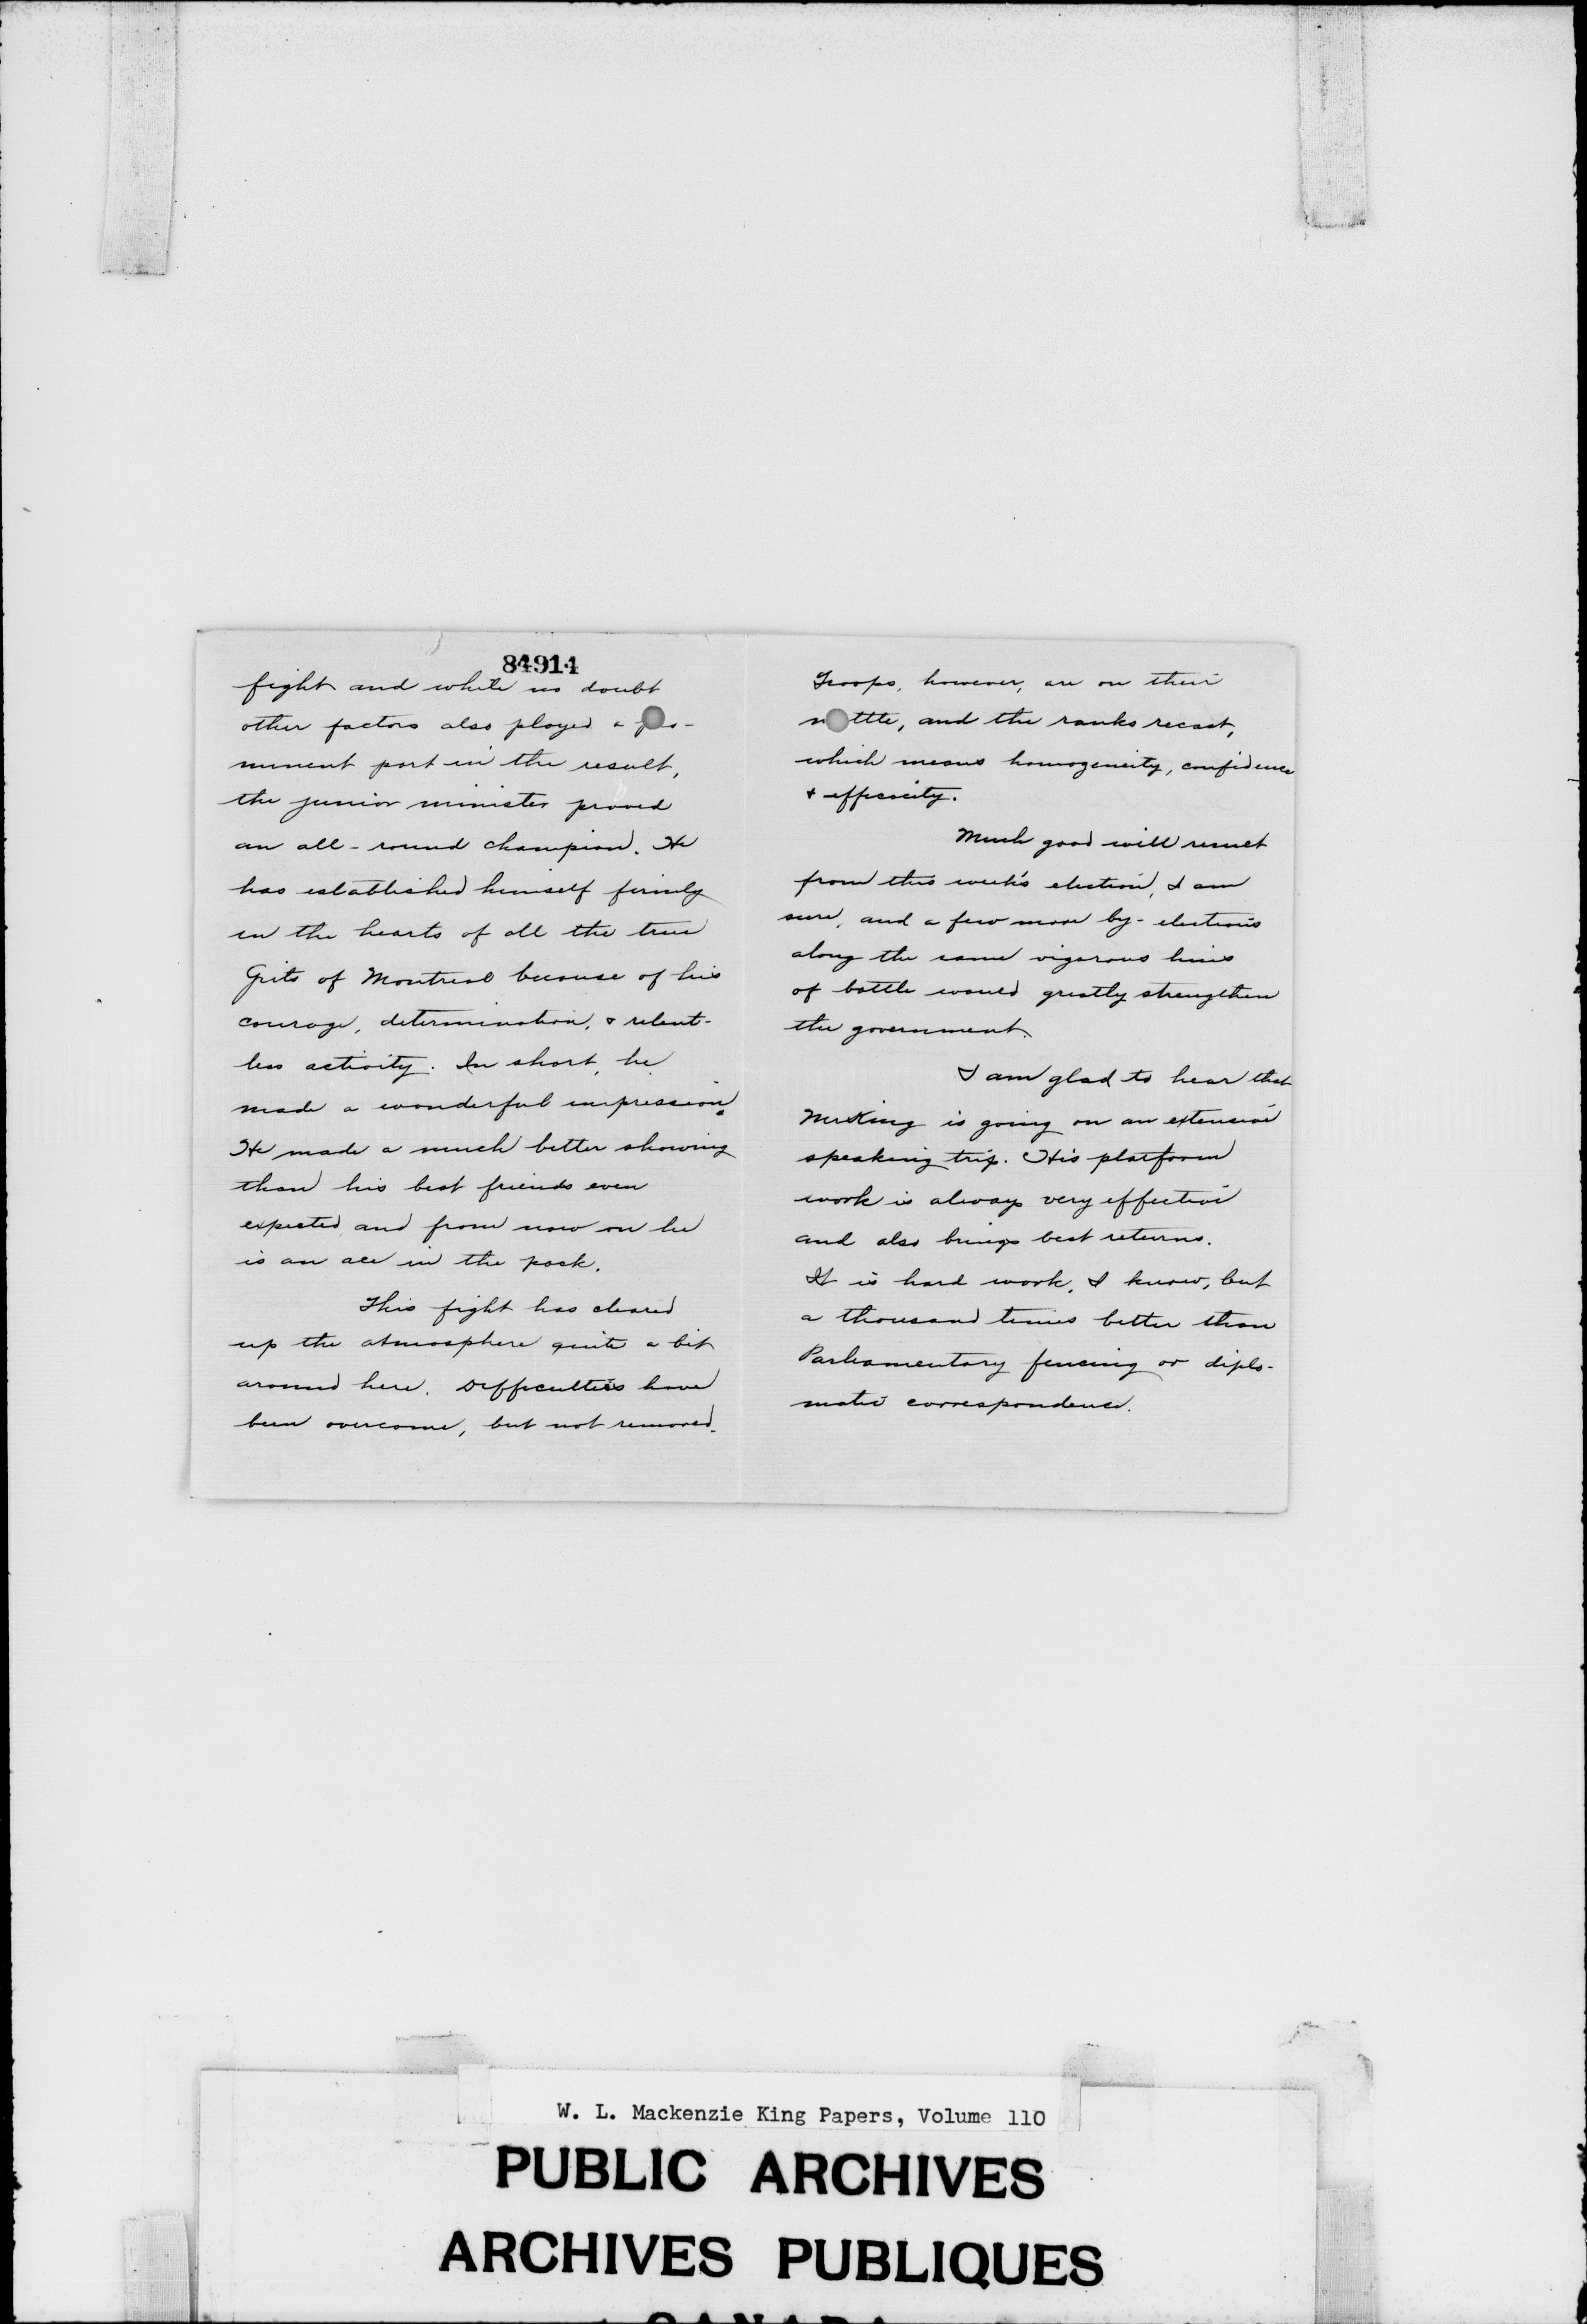 84914
fight and while no doubt
other factors also played a pro-
minent part in the result,
the junior minister proved
an all-round champion. He
has established himself firmly
in the hearts of all the true
Grits of Montreal because of his
courage, determination, & relent-
less activity. In short, he
made a wonderful impression.
He made a much better showing
than his best friends even
expected and from now on he
is an ace in the pack.
This fight has cleared
up the atmosphere quite a bit
around here. Difficulties have
been overcome, but not removed.
Troops, however, are on their
mettle, and the ranks recast,
which means homogeneity, confidence
& efficacity.
Much good will result
from this week's election, I am
sure, and a few more by-elections
along the same vigorous lines
of battle would greatly strengthen
the government.
I am glad to hear that
Mr King is going on an extensive
speaking trip. His platform
work is always very effective
and also brings best returns.
It is hard work, I know, but
a thousand times better than
Parliamentary fencing or diplo-
matic correspondence.
W. L. Mackenzie King Papers, Volume 110
PUBLIC ARCHIVES
ARCHIVES PUBLIQUES
CANADA